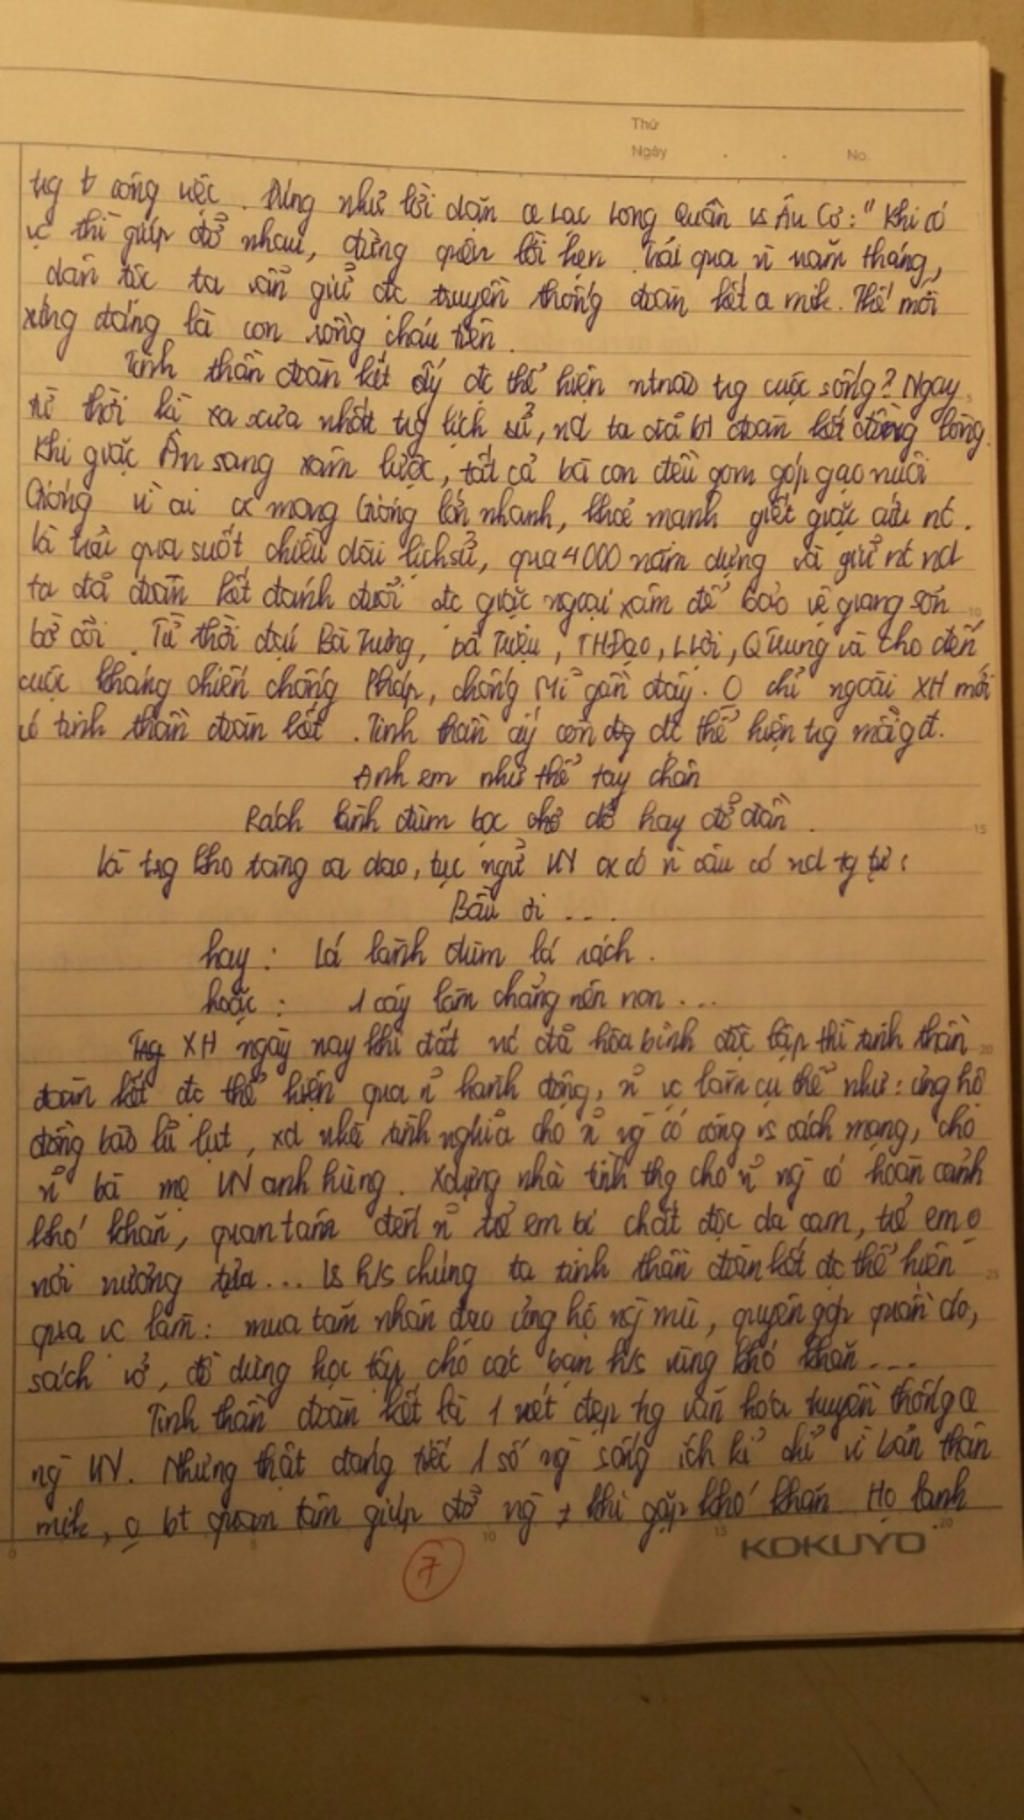 Thứ
Ngày . . No.
tng t công việc. Đúng như lời dặn c̉a Lạc Long Quân vs Âu Cơ: "Khi có
vc thì giúp đỡ nhau, đừng quên lời hẹn. Trải qua n̄ năm tháng,
dân tộc ta vẫn giữ đc truyền thống đoàn kết a mik. Thế mới
xứng đáng là con rồng cháu tiên.
Tinh thần đoàn kết ấy đc thể hiện ntnào tng cuộc sống? Ngay
từ thời kì xa xưa nhất tng lịch sử, nd ta đã bt đoàn kết đồng lòng.
Khi giặc Ân sang xâm lược, tất cả bà con đều gom góp gạo nuôi
Gióng vì ai cx mong Gióng lớn nhanh, khoẻ mạnh giết giặc cứu nc.
Và trải qua suốt chiều dài lịch sử, qua 4000 năm dựng và giữ nc nd
ta đã đoàn kết đánh đuổi đc giặc ngoại xâm để bảo vệ giang sơn
bờ cõi. Từ thời đại Bà Trưng, bà Triệu, THĐạo, LLợi, QTrung và cho đến
cuộc kháng chiến chống Pháp, chống Mĩ gần đây. O chỉ ngoài XH mới
có tinh thần đoàn kết. Tinh thần ấy còn đc thể hiện tng mỗi gđ.
Anh em như thể tay chân
Rách lành đùm bọc dở hay đỡ đần.
Và tng kho tàng ca dao, tục ngữ VN cx có n̄ câu có nd tg tự:
Bầu ơi ....
hay: Lá lành đùm lá rách.
hoặc: 1 cây làm chẳng nên non...
Tng XH ngày nay khi đất nc đã hòa bình độc lập thì tinh thần
đoàn kết đc thể hiện qua n̉ hành động, n̉ vc làm cụ thể như: ủng hộ
đồng bào lũ lụt, xd nhà tình nghĩa cho n̉ ng có công vs cách mạng, cho
n̉ bà mẹ VN anh hùng. Xdựng nhà tình thg cho n̉ ng có hoàn cảnh
khó khăn, quan tâm đến n̉ trẻ em bị chất độc da cam, trẻ em o
nơi nương tựa... Vs h/s chúng ta tinh thần đoàn kết đc thể hiện
qua vc làm: mua tăm nhân đạo ủng hộ ng mù, quyên góp quần áo,
sách vở, đồ dùng học tập cho các bạn h/s vùng khó khăn...
Tinh thần đoàn kết là 1 nét đẹp tng văn hóa truyền thống c̉a
ng VN. Nhưng thật đáng tiếc 1 số ng sống ích kỉ chỉ vì bản thân
mik, o bt quan tâm giúp đỡ ng ≠ khi gặp khó khăn. Họ lạnh
7
KOKUYO